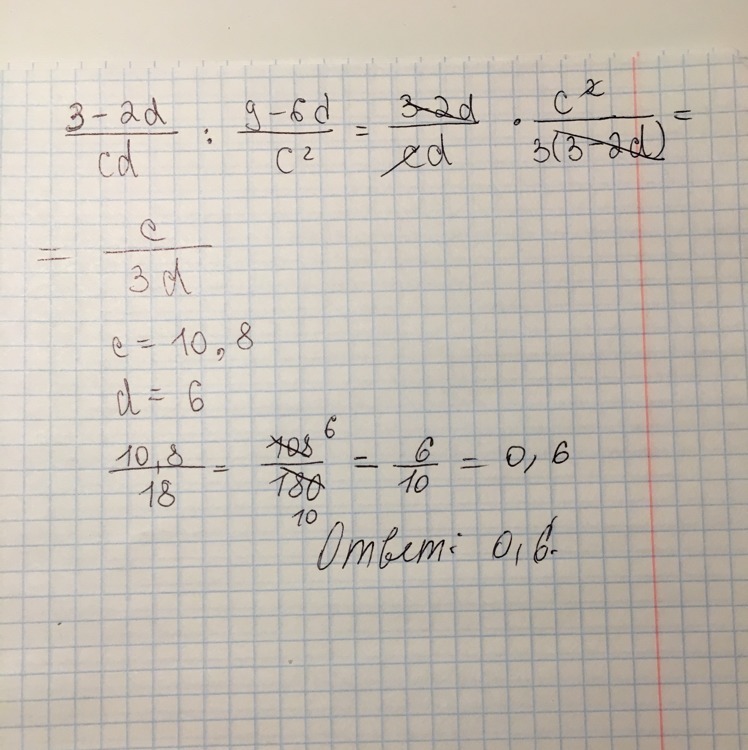 3-2d/cd : 9-6d/c² = 3-2d/cd · c²/3(3-2d) =
= c/3d
c = 10,8
d = 6
10,8/18 = 108/180 6/10 = 6/10 = 0,6
Ответ: 0,6.